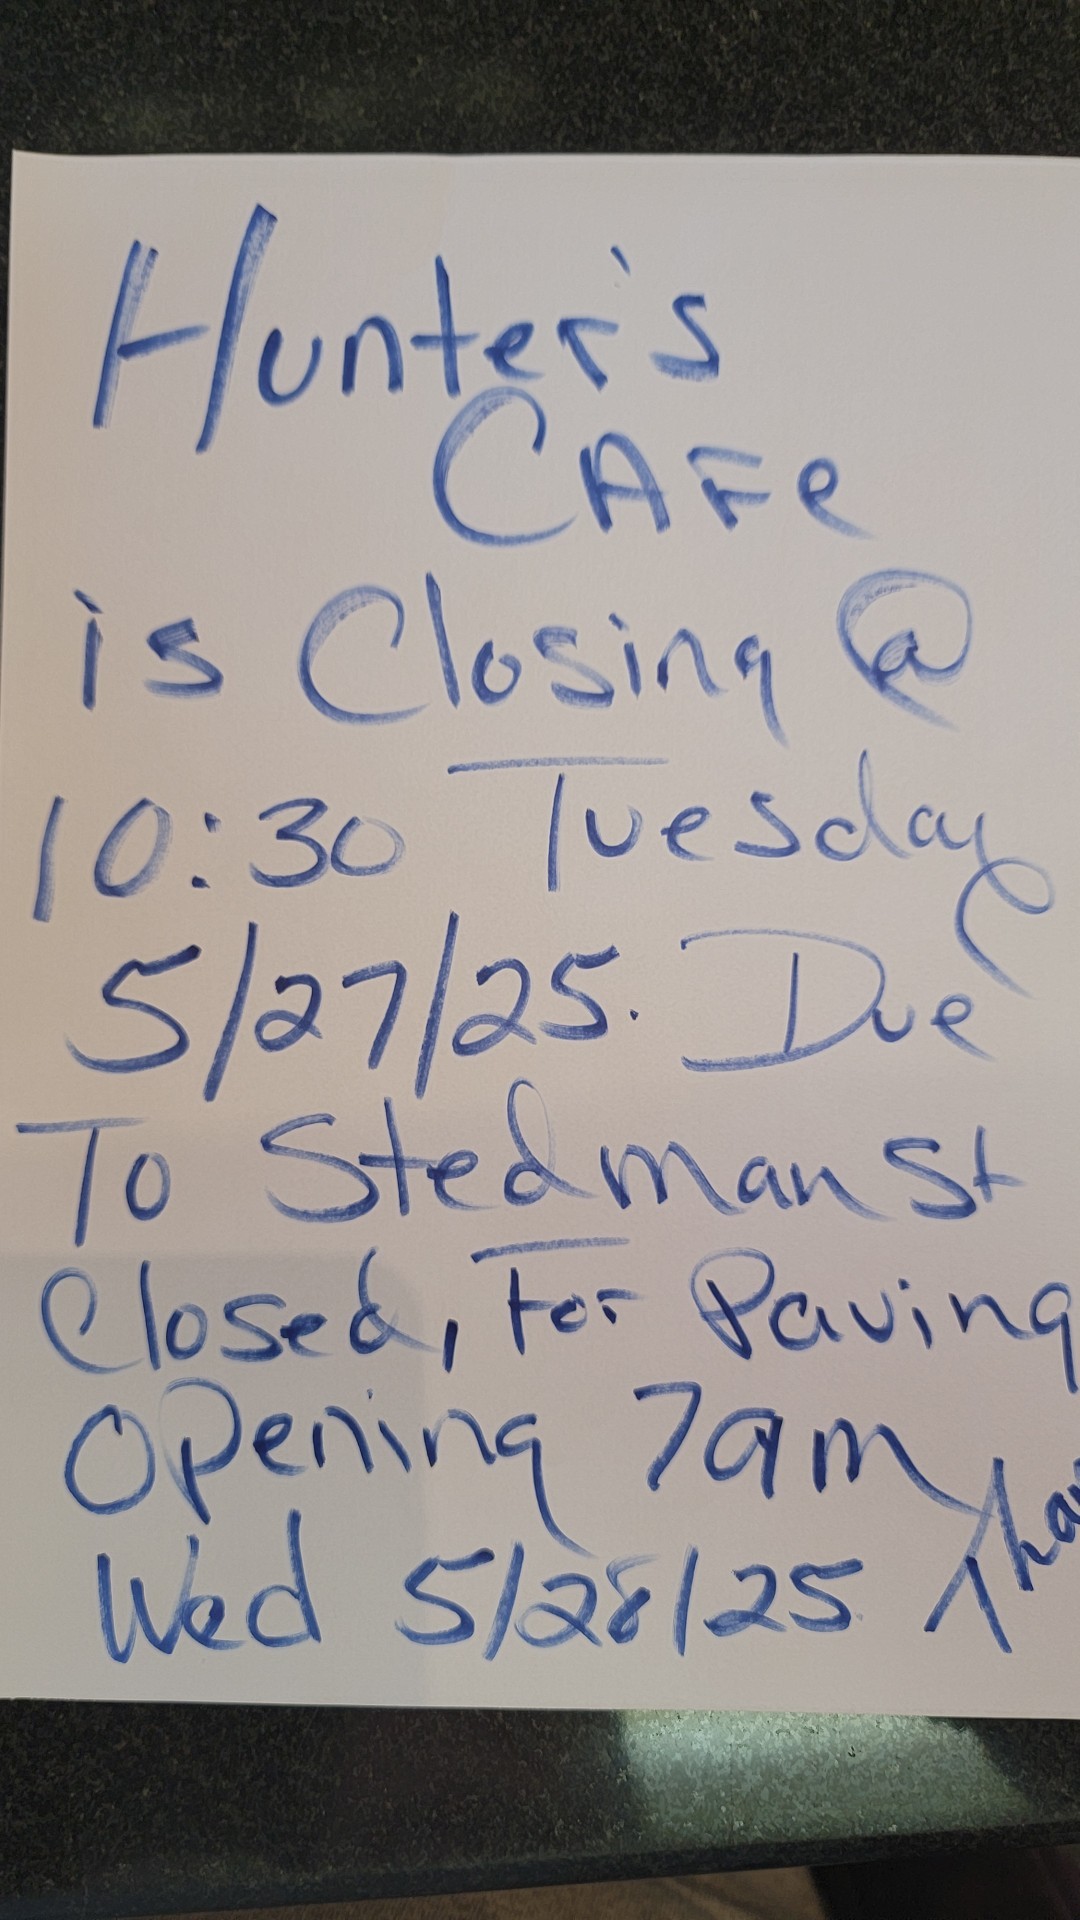 Hunter's
CAFe
is Closing @
10:30 Tuesday
5/27/25. Due
To Stedman St
Closed, For Paving
Opening 7am
Wed 5/28/25